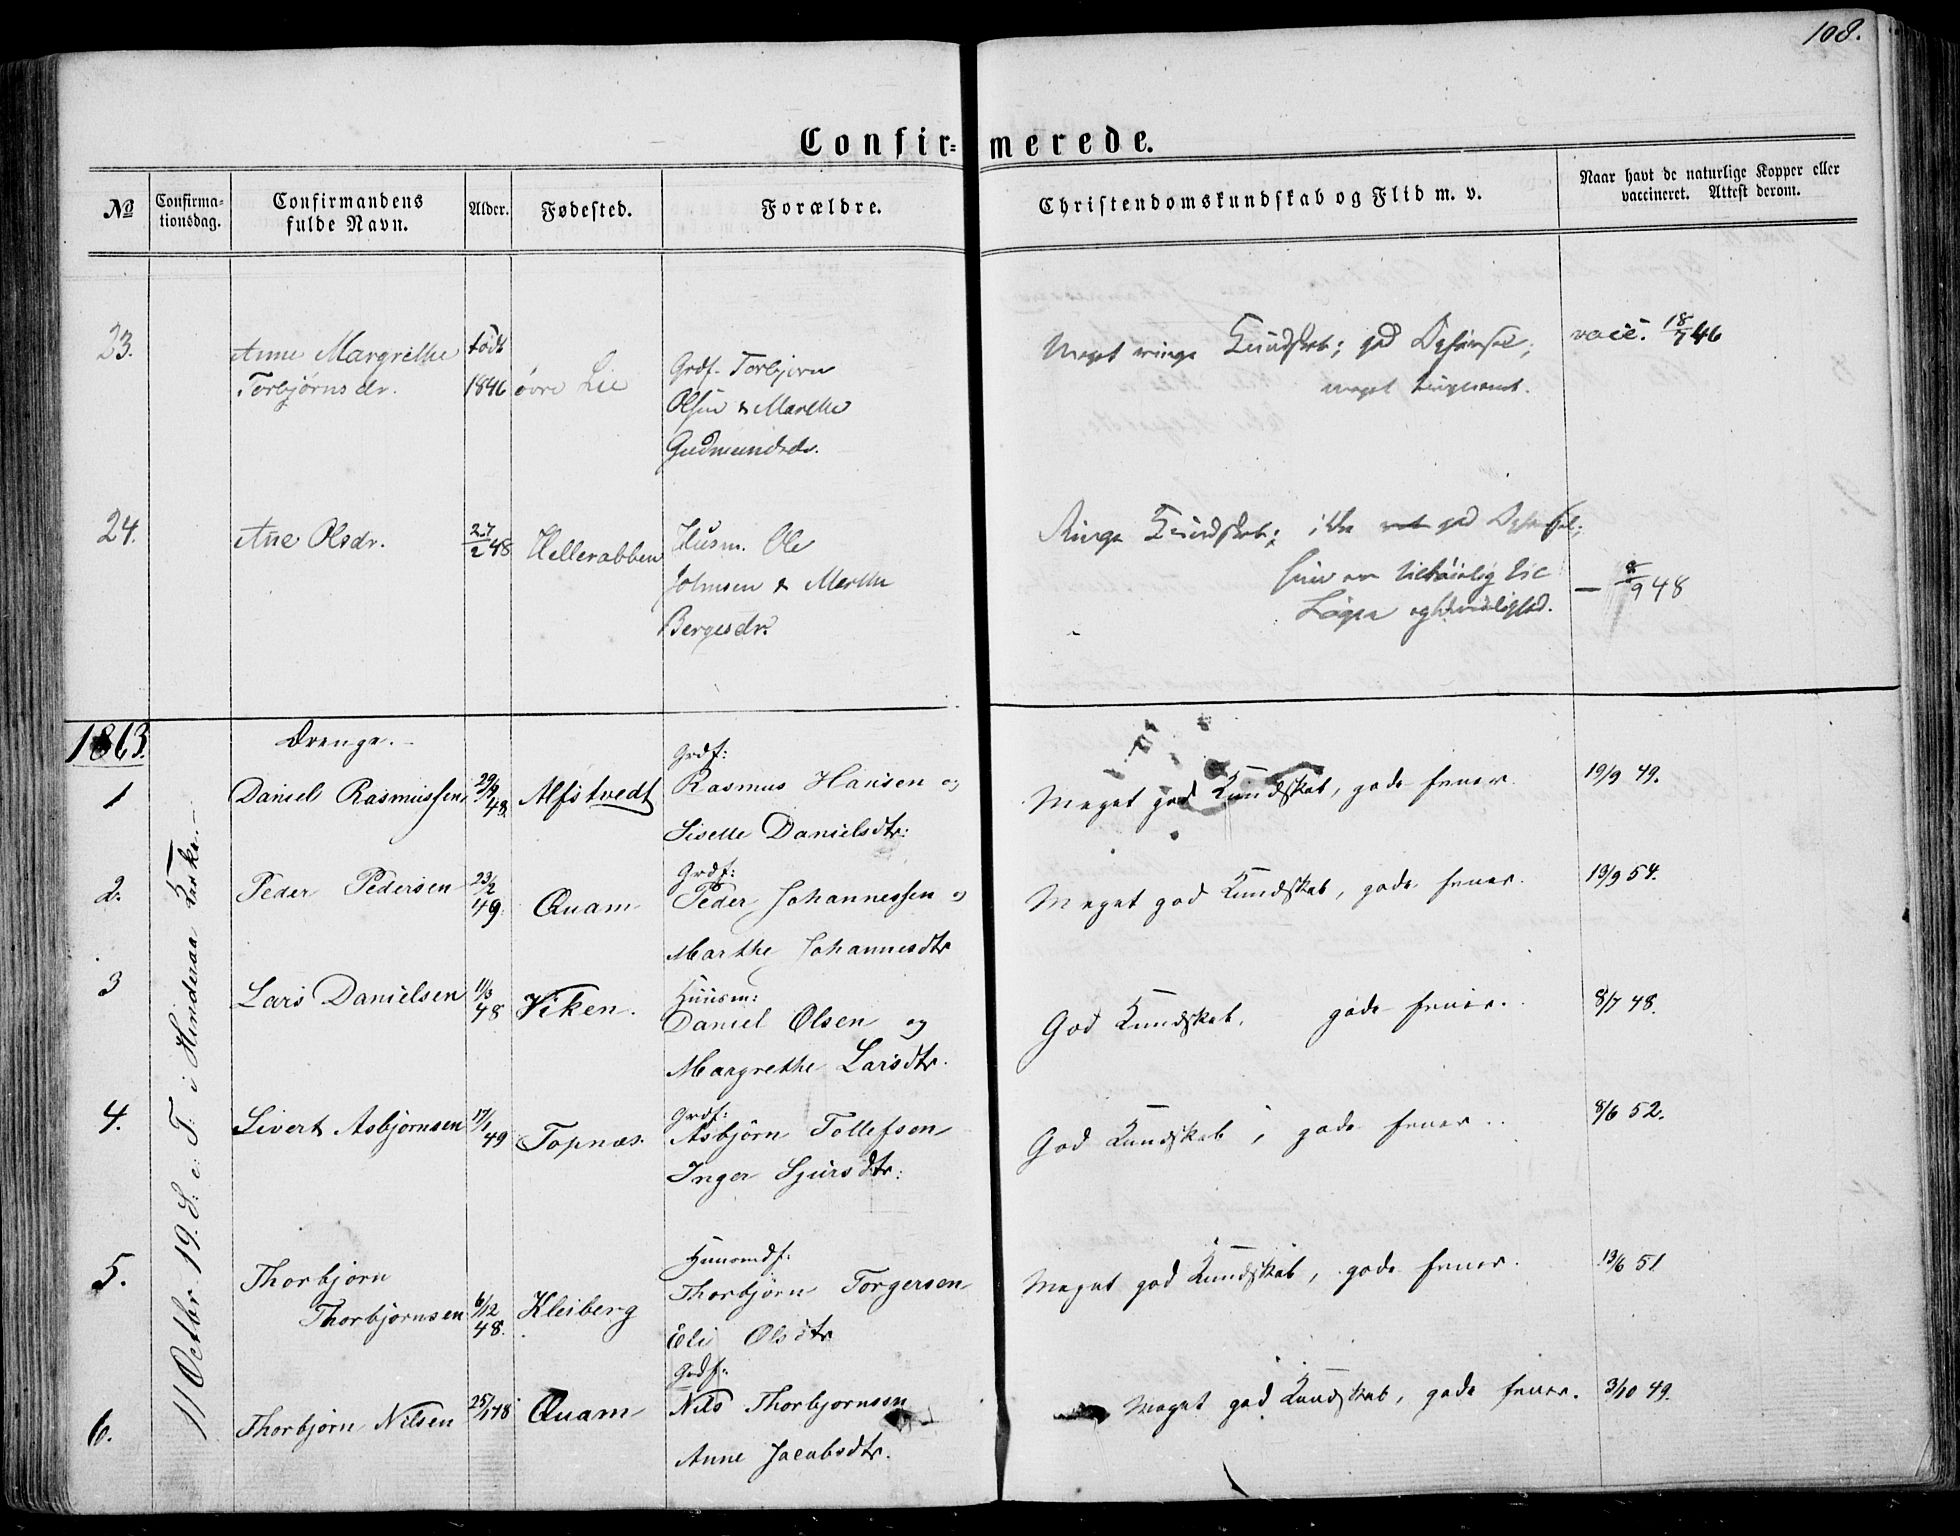 108.
Confirmerede.
No
Confirma-
tionsdag.
Confirmandens
fulde Navn.
Alder.
Fødested.
Forældre.
Christendomskundskab og Flid m. v.
Naar havt de naturlige Kopper eller
vaccineret. Attest derom.
23.
Anne Margrethe
Torbjørnsdr.
født
1846
øvre Lie
Grdf. Torbjørn
Olsen & Marthe
Gudmundsdr.
Meget ringe Kundskab; god Opførsel;
meget tungnemt.
vacc. 18/7 46
24.
Ane Olsdr.
27/2 48
Hellerabben
Husm. Ole
Johnsen & Marthe
Bergesdr.
Ringe Kundskab; ikke god Opførsel;
hun er tilbøielig til
Løgn og
— 8/9 48
1863.
Drenge.
11 Octbr. 19. S: e: T: i Hinderaa Kirke.
1
Daniel Rasmussen
29/9 48.
Alfstvedt
Grdf:
Rasmus Hansen og
Siselle Danielsdtr:
Meget god Kundskab, gode Evner.
19/9 49.
2.
Peder Pedersen
23/2 49
Quam
Grdf:
Peder Johannessen og
Marthe Johannesdtr
Meget god Kundskab, gode Evner.
13/9 54.
3
Lars Danielsen
11/3 48
Viken.
Huusm:
Daniel Olsen og
Margrethe Larsdtr.
God Kundskab, gode Evner.
8/7 48.
4.
Sivert Asbjørnsen
17/1 49
Topnæs.
Grdf:
Asbjørn Tollefsen
Inger Sjursdtr:
God Kundskab, gode Evner.
8/6 52.
5.
Thorbjørn
Thorbjørnsen
6/12 48.
Kleiberg
Huusmdf:
Thorbjørn Torgersen
Eli Olsdtr
Meget god Kundskab, gode Evner.
13/6 51
6.
Thorbjørn Nilsen
25/1 48
Quam
Grdf:
Nils Thorbjørnsen
Anne Jacobsdtr.
Meget god Kundskab, gode Evner.
3/10 49.